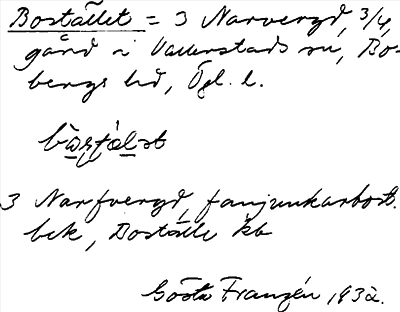 Bostället = 3 Narveryd, 3/4,
gård i Vallerstads sn, Bo-
bergs hd, Ögl. l.
bo̤stäl̲ət
3 Narfveryd, fanjunkarbost.
bek, Boställe kb
Gösta Franzén 1932.